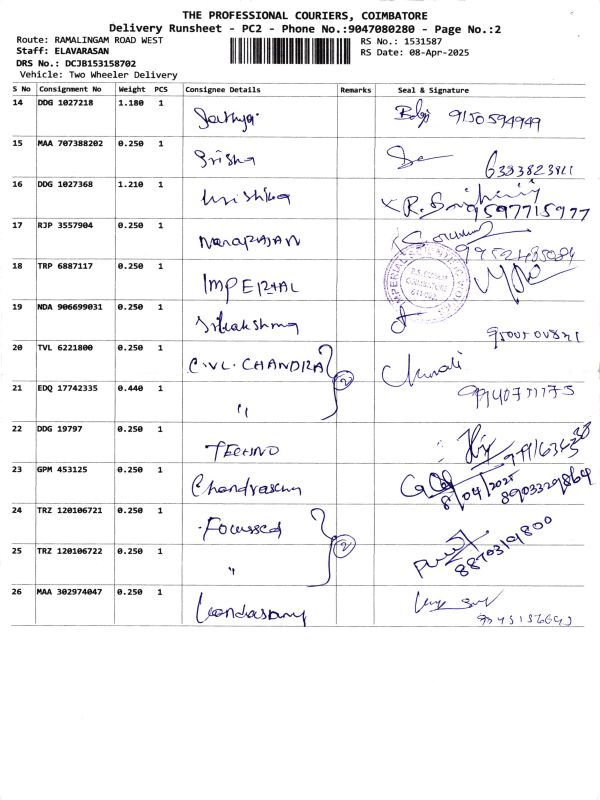 THE PROFESSIONAL COURIERS, COIMBATORE
Delivery Runsheet - PC2 - Phone No.:9047080280 - Page No.:2
Route: RAMALINGAM ROAD WEST
RS No.: 1531587
Staff: ELAVARASAN
RS Date: 08-Apr-2025
DRS No.: DCJB153158702
Vehicle: Two Wheeler Delivery
S No Consignment No Weight PCS Consignee Details Remarks Seal & Signature
14 DDG 1027218 1.180 1 Sathya 9150594949
15 MAA 707388202 0.250 1 Srisha
16 DDG 1027368 1.210 1 9597715977
17 RJP 3557904 0.250 1 Narayanan
18 TRP 6887117 0.250 1 IMPERIAL
19 NDA 906699031 0.250 1
20 TVL 6221800 0.250 1 C.VL.CHANDRA 2
21 EDQ 17742335 0.440 1 "
22 DDG 19797 0.250 1 TECHNO
23 GPM 453125 0.250 1 8/04/2025 8903329864
24 TRZ 120106721 0.250 1 Focussed 2
25 TRZ 120106722 0.250 1 " 8870319800
26 MAA 302974047 0.250 1